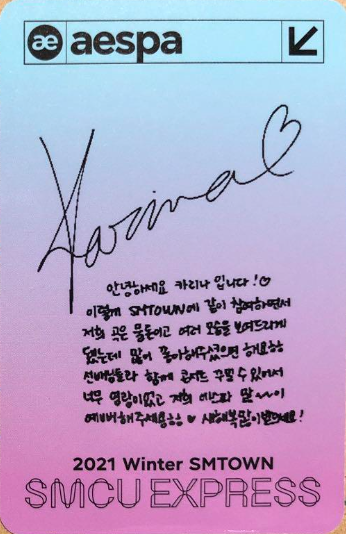 ae aespa
Karina♡
안녕하세요 카리나 입니다!♡
이렇게 SMTOWN에 같이 참여하면서
저희 곡은 물론이고 여러 모습을 보여드리게
됐는데 많이 좋아해주셨으면 해요ㅎㅎ
선배님들과 함께 콘서트 꾸밀 수 있어서
너무 영광이었고 저희 에스파 많~~이
예뻐해주세요ㅎㅎ ♥ 새해복많이받으세요!
2021 Winter SMTOWN
SMCU EXPRESS